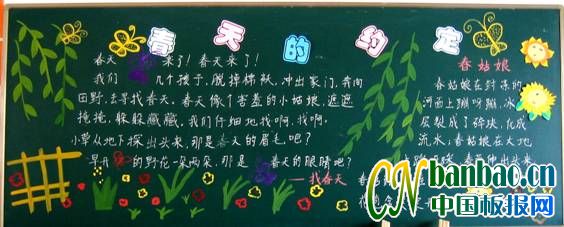 春天的约定
春天来了！春天来了！
我们几个孩子，脱掉棉袄，冲出家门，奔向
田野，去寻找春天。春天像个害羞的小姑娘，遮遮
掩掩，躲躲藏藏。我们仔细地找啊，找啊。
小草从地下探出头来，那是春天的眉毛吧？
早开的野花一朵两朵，那是春天的眼睛吧？
——找春天
春姑娘
春姑娘在封冻的
河面上蹦呀蹦，冰
层裂成了碎块，化成
流水，春姑娘在大地
春
CN banbao.cn
中国板报网